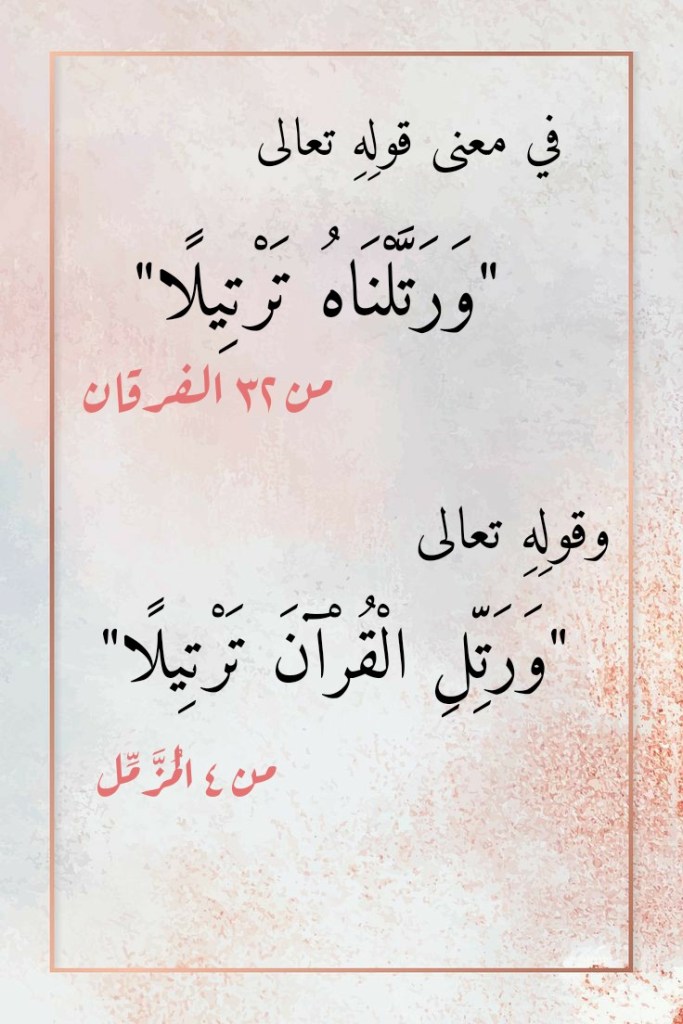 في معنى قولِهِ تعالى
"وَرَتَّلْنَاهُ تَرْتِيلًا"
من ٣٢ الفرقان
وقولِهِ تعالى
"وَرَتِّلِ الْقُرْآنَ تَرْتِيلًا"
من ٤ المُزَّمِّل